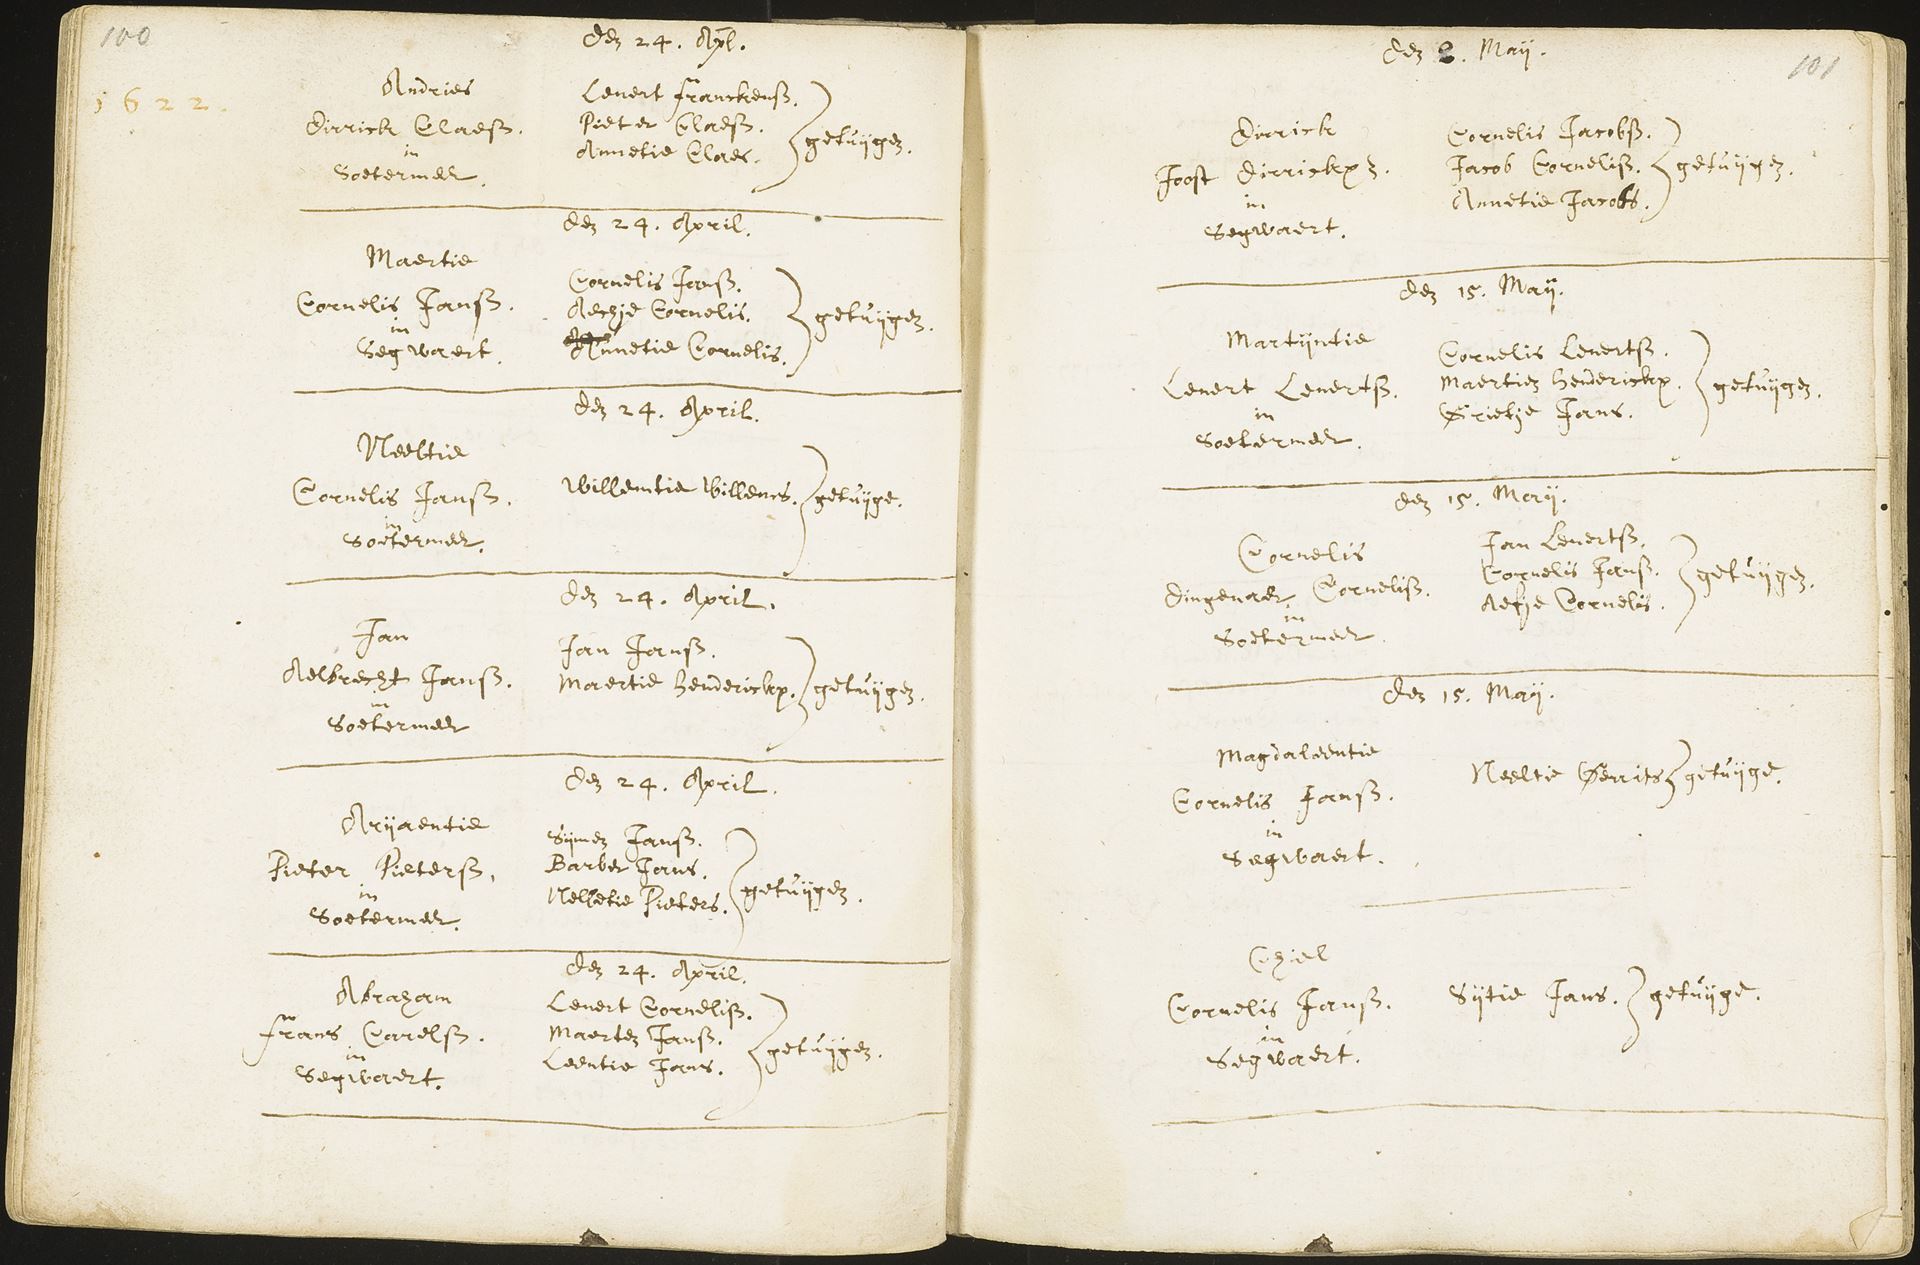 100
1622.
den 24. Apl.
Andries
Dirrick Claesz.
in
Soetermeer.
Lenert Franckensz.
Pieter Claesz.
Annetie Claes.
getuijgen.
den 24. April.
Maertie
Cornelis Jansz.
in
Segwaert.
Cornelis Jansz.
Aechje Cornelis.
Annetie Cornelis.
getuijgen.
den 24. April.
Neeltie
Cornelis Jansz.
in
Soetermeer.
Willemtie Willems.
getuijge.
den 24. April.
Jan
Aelbrecht Jansz.
in
Soetermeer
Jan Jansz.
Maertie Henderickx.
getuijgen.
den 24. April.
Arijaentie
Pieter Pietersz.
in
Soetermeer.
Sijmen Jansz.
Barber Jans.
Nelletie Pieters.
getuijgen.
den 24. April.
Abraham
Frans Carelsz.
in
Segwaert.
Lenert Cornelisz.
Maerten Jansz.
Leentie Jans.
getuijgen.
101
den 2. Maij.
Dirrick
Joost Dirrickxz.
in
Segwaert.
Cornelis Jacobsz.
Jacob Cornelisz.
Annetie Jacobs.
getuijgen.
den 15. Maij.
Martijntie
Lenert Lenertsz.
in
Soetermeer.
Cornelis Lenertsz.
Maertien Henderickx.
Grietje Jans.
getuijgen.
den 15. Maij.
Cornelis
Dingenaer Cornelisz.
in
Soetermeer.
Jan Lenertsz.
Cornelis Jansz.
Aefje Cornelis.
getuijgen.
den 15. Maij.
Magdaleentie
Cornelis Jansz.
in
Segwaert.
Neeltie Gerrits
getuijge.
Chiel
Cornelis Jansz.
in
Segwaert.
Sijtie Jans.
getuijge.